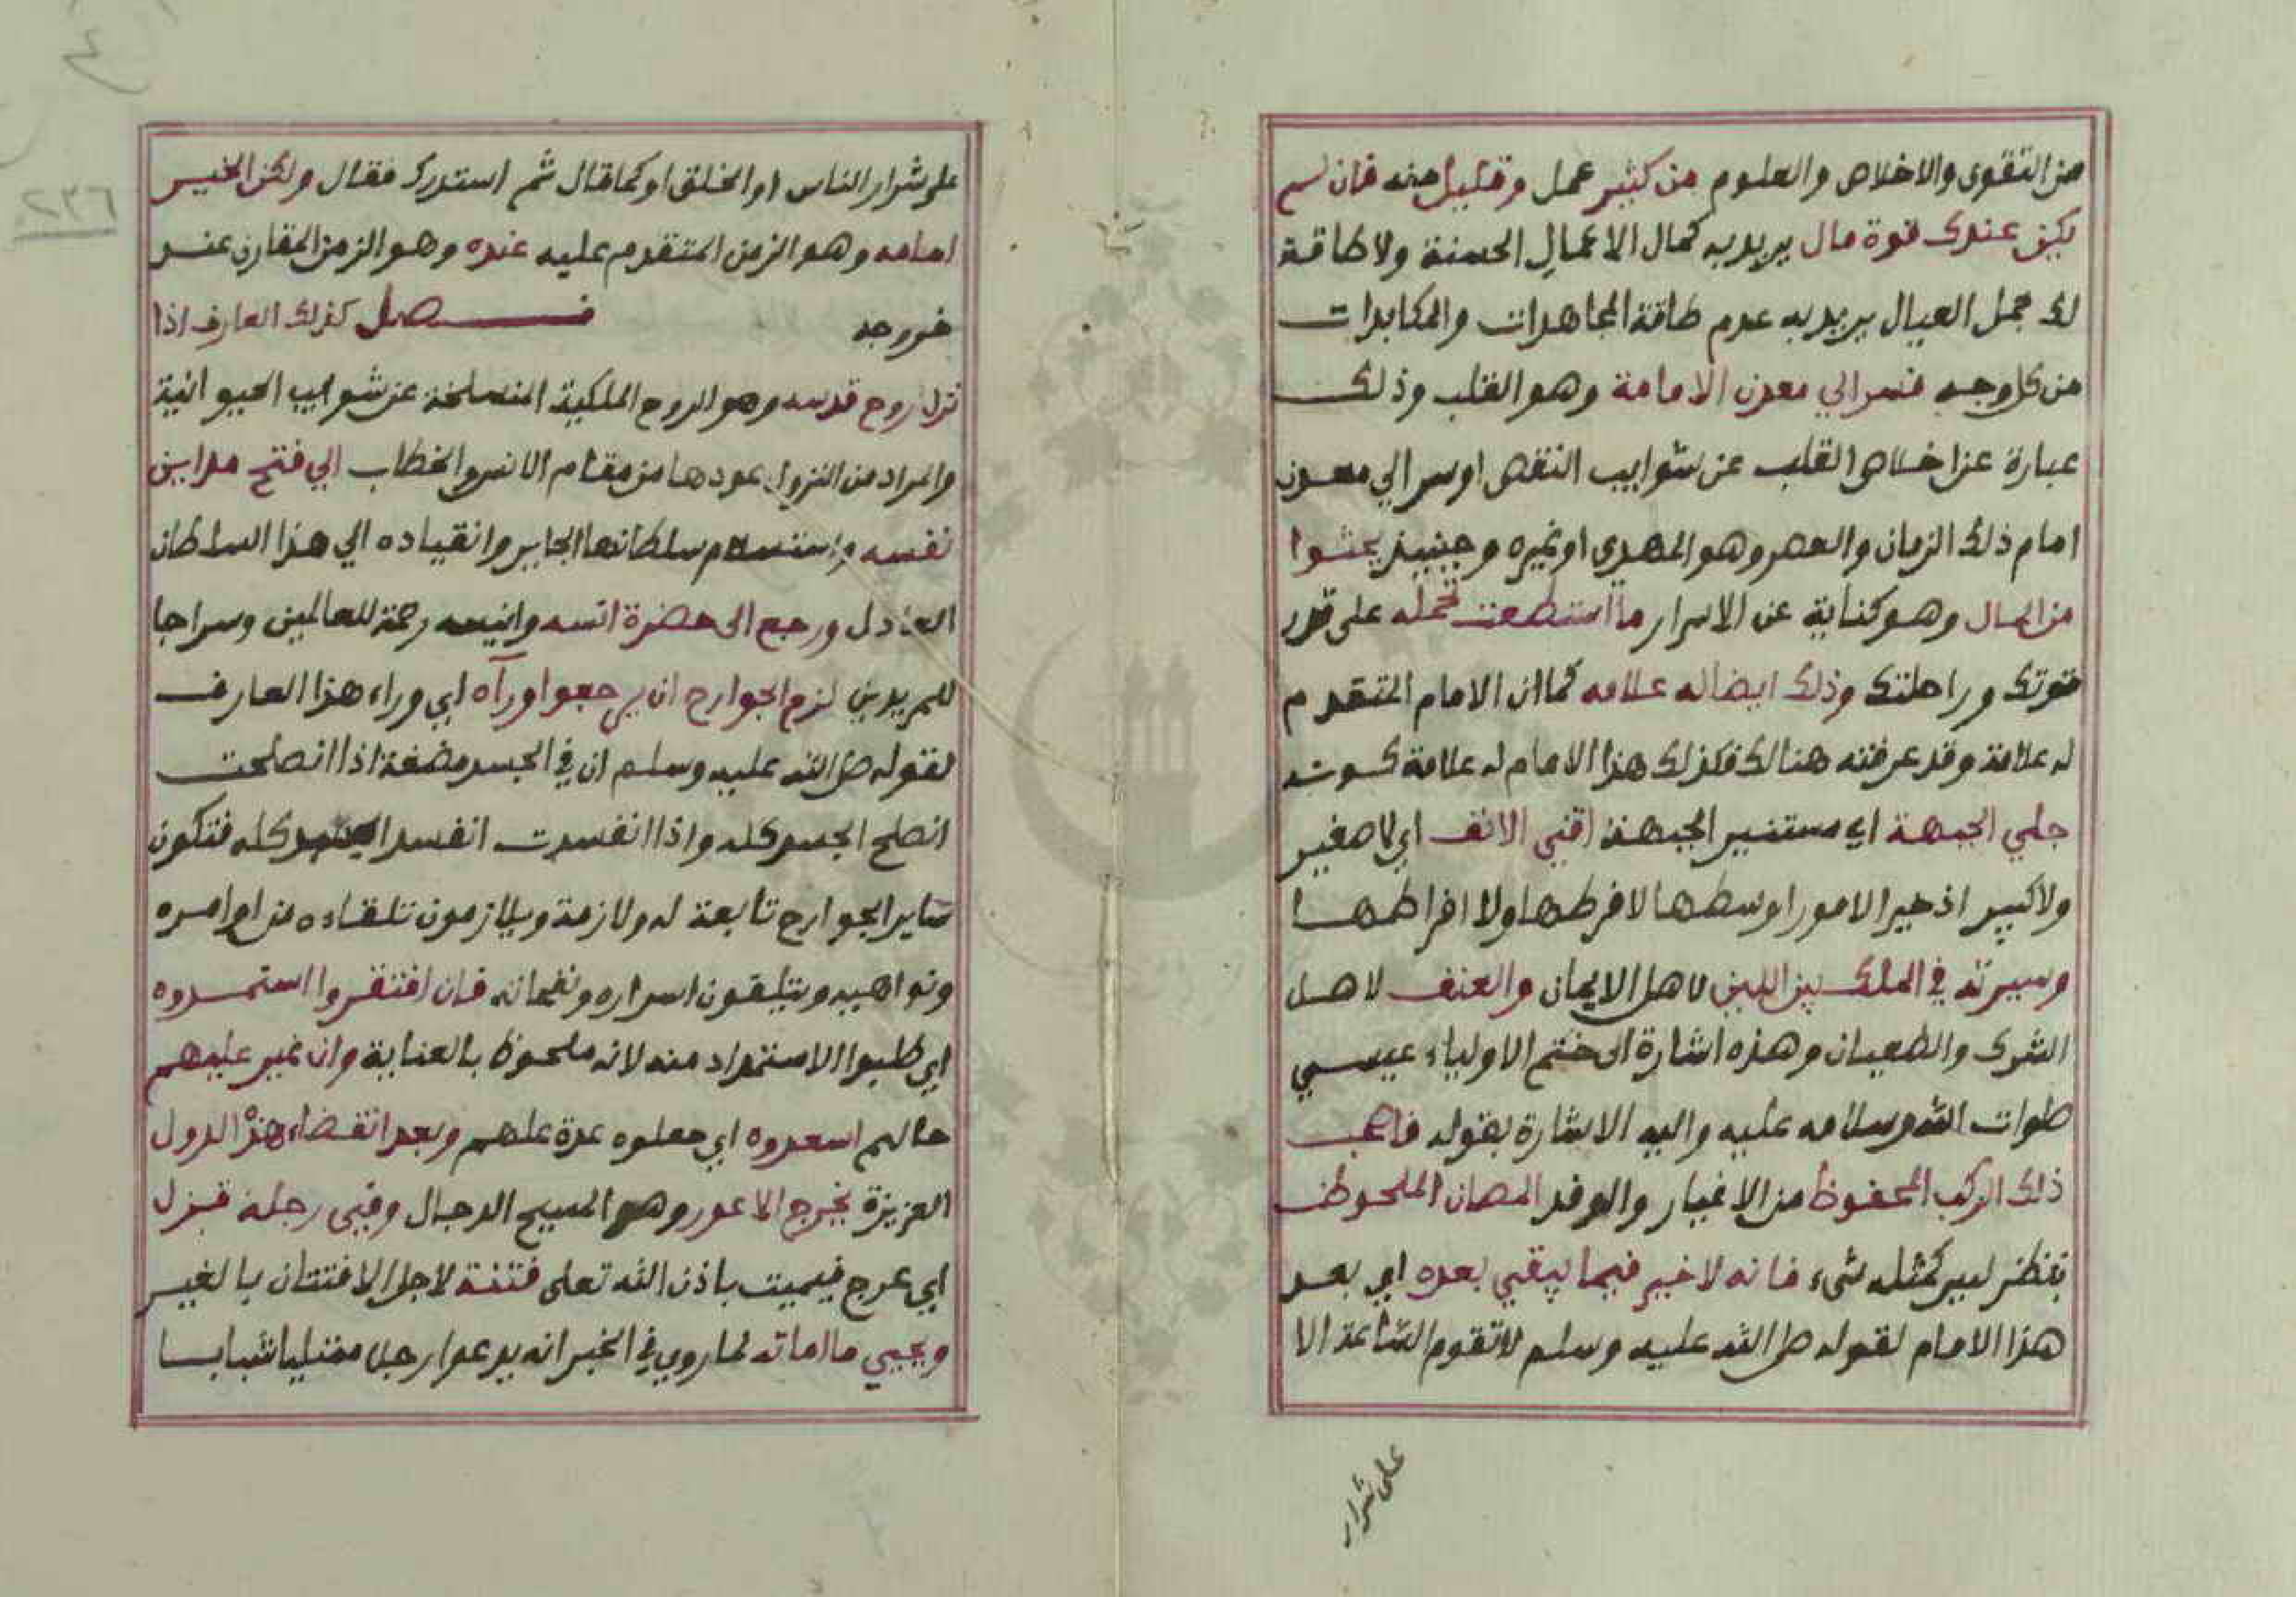 من التقوى والاخلاص والعلوم من كثير عمل وقليل منه فان لم
يكن عندك قوة مال يريد به كمال الاعمال الحسنة ولا طاقة
لك بحمل العيال يريد به عدم طاقة المجاهدات والمكابدات
من كل وجه فسر الي معدن الامامة وهو القلب وذلك
عبارة عن اخلاص القلب عن شوايب النقص او سر الي معدن
امام ذلك الزمان والعصر وهو المهدي او غيره وحينيذ يحثوا
من المال وهو كناية عن الاسرار ما استطعت تحمله على قدر
قوتك وراحلتك وذلك ايضا له علامه كما ان الامام المتقدم
له علامة وقد عرفته هنالك فكذلك هذا الامام له علامة كونه
جلي الجبهة اي مستنير الجبهة اقني الانف اي لا صغير
ولا كبير اذ خير الامور اوسطها لا فرطها ولا افراطها
وسيرته في الملك بين اللين لاهل الايمان والعنف لاهل
الشرك والطغيان وهذه اشارة الى ختم الاولياء عيسي
صلوات الله وسلامه عليه واليه الاشارة بقوله فاصحب
ذلك الركب المحفوظ من الاغيار والوفد المصان الملحوظ
بنظر ليس كمثله شيء فانه لا خير فيما يبقي بعده اي بعد
هذا الامام لقوله صلى الله عليه وسلم لا تقوم الساعة الا
على شرار
٤
٢٣٦
على شرار الناس او الخلق او كما قال ثم استدرك فقال ولكن الخير
امامه وهو الزمن المتقدم عليه عنده وهو الزمن المقارن عند
خروجه فصل كذلك العارف اذا
نزل روح قدسه وهو الروح الملكية المنسلخة عن شوايب الحيوانية
والمراد من النزول عودها من مقام الانس والخطاب الي فتح مداين
نفسه واستسلام سلطانها الجاير وانقياده الي هذا السلطان
العادل ورجع الى حضرة انسه وانيسه رحمة للعالمين وسراجا
للمريدين لزم الجوارح ان يرجعوا ورآه اي وراء هذا العارف
لقوله صلى الله عليه وسلم ان في الجسد مضغة اذا انصلحت
انصلح الجسد كله واذا انفسدت انفسد الجسد كله فتكون
ساير الجوارح تابعة له ولازمة ويلازمون تلقاءه من اوامره
ونواهيه ويتلقون اسراره ونفحاته فان افتقروا استمدوه
اي طلبوا الاستمداد منه لانه ملحوظ بالعناية وان غير عليهم
حالهم اسعدوه اي جعلوه عدة علهم وبعد انقضاء هذه الدول
العزيزة يخرج الاعور وهو المسيح الدجال وفي رجله قزل
اي عرج فيميت باذن الله تعلى فتنة لاجل الافتتان بالغير
ويحيي ما اماته لما روي في الخبر انه يدعوا رجلا ممتليا شبابا